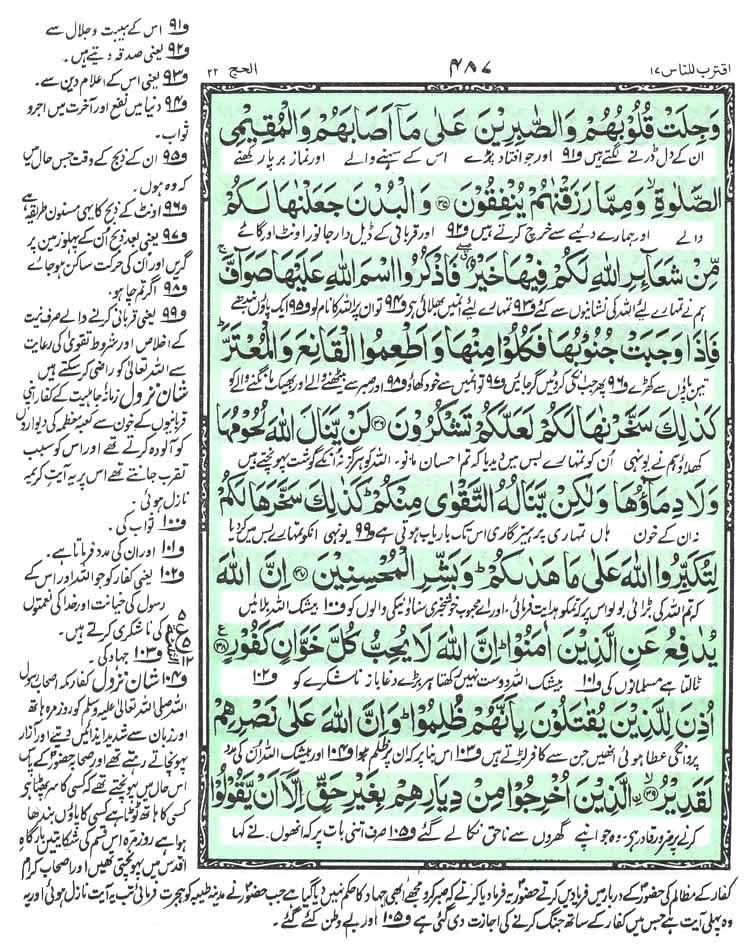 اقترب للناس ۱۷
۴۸۷
الحج ۲۲
وَجِلَتْ قُلُوْبُهُمْ وَالصّٰبِرِيْنَ عَلٰى مَاۤ اَصَابَهُمْ وَالْمُقِيْمِى
ان کے دل ڈرنے لگتے ہیں و۹۱ اور جو افتاد پڑے اس کے سہنے والے اور نماز برپا رکھنے
الصَّلٰوةِ ۙ وَمِمَّا رَزَقْنٰهُمْ يُنْفِقُوْنَ ﴿۳۵﴾ وَالْبُدْنَ جَعَلْنٰهَا لَكُمْ
والے اور ہمارے دیے سے خرچ کرتے ہیں و۹۲ اور قربانی کے ڈیل دار جانور اونٹ اور گائے
مِّنْ شَعَآئِرِ اللّٰهِ لَكُمْ فِيْهَا خَيْرٌ ۖ فَاذْكُرُوا اسْمَ اللّٰهِ عَلَيْهَا صَوَآفَّ ۚ
ہم نے تمہارے لیے اللہ کی نشانیوں سے کئے و۹۳ تمہارے لیے انہیں بھلائی ہی و۹۴ تو ان پر اللہ کا نام لو و۹۵ ایک پاؤں بندھے
فَاِذَا وَجَبَتْ جُنُوْبُهَا فَكُلُوْا مِنْهَا وَاَطْعِمُوا الْقَانِعَ وَالْمُعْتَرَّ ؕ
تین پاؤں سے کھڑے و۹۶ پھر جب انکی کروٹیں گر جائیں و۹۷ تو انمیں سے خود کھاؤ و۹۸ اور صبر سے بیٹھنے والے اور بھیک مانگنے والے کو
كَذٰلِكَ سَخَّرْنٰهَا لَكُمْ لَعَلَّكُمْ تَشْكُرُوْنَ ﴿۳۶﴾ لَنْ يَّنَالَ اللّٰهَ لُحُوْمُهَا
کھلاؤ ہم نے یونہی ان کو تمہارے بس میں دیدیا کہ تم احسان مانو۔ اللہ کو ہرگز نہ انکے گوشت پہونچتے ہیں
وَلَا دِمَآؤُهَا وَلٰكِنْ يَّنَالُهُ التَّقْوٰى مِنْكُمْ ؕ كَذٰلِكَ سَخَّرَهَا لَكُمْ
نہ ان کے خون ہاں تمہاری پرہیزگاری اس تک باریاب ہوتی ہے و۹۹ یونہی انکو تمہارے بس میں کر دیا
لِتُكَبِّرُوا اللّٰهَ عَلٰى مَا هَدٰىكُمْ ؕ وَبَشِّرِ الْمُحْسِنِيْنَ ﴿۳۷﴾ اِنَّ اللّٰهَ
کہ تم اللہ کی بڑائی بولو اس پر کہ تمکو ہدایت فرمائی، اور اے محبوب خوشخبری سناؤ نیکی والوں کو و۱۰۰ بیشک اللہ بلائیں
يُدٰفِعُ عَنِ الَّذِيْنَ اٰمَنُوْا ؕ اِنَّ اللّٰهَ لَا يُحِبُّ كُلَّ خَوَّانٍ كَفُوْرٍ ﴿۳۸﴾
ٹالتا ہے مسلمانوں کی و۱۰۱ بیشک اللہ دوست نہیں رکھتا ہر بڑے دغا باز ناشکرے کو و۱۰۲
اُذِنَ لِلَّذِيْنَ يُقٰتَلُوْنَ بِاَنَّهُمْ ظُلِمُوْا ؕ وَاِنَّ اللّٰهَ عَلٰى نَصْرِهِمْ
پروانگی عطا ہوئی انھیں جن سے کافر لڑتے ہیں و۱۰۳ اس بنا پر کہ ان پر ظلم ہوا و۱۰۴ اور بیشک اللہ ان کی مدد
لَقَدِيْرُ ۙ ﴿۳۹﴾ ۨالَّذِيْنَ اُخْرِجُوْا مِنْ دِيَارِهِمْ بِغَيْرِ حَقٍّ اِلَّاۤ اَنْ يَّقُوْلُوْا
کرنے پر ضرور قادر ہے، وہ جو اپنے گھروں سے ناحق نکالے گئے و۱۰۵ صرف اتنی بات پر کہ انھوں نے کہا
و۹۱ اس کے ہیبت و جلال سے
و۹۲ یعنی صدقہ دیتے ہیں۔
و۹۳ یعنی اس کے اعلام دین سے۔
و۹۴ دنیا میں نفع اور آخرت میں اجر و
ثواب۔
و۹۵ ان کے ذبح کے وقت جس حال میں
کہ وہ ہوں۔
و۹۶ اونٹ کے ذبح کا یہی مسنون طریقہ ہے
و۹۷ یعنی بعد ذبح ان کے پہلو زمین پر
گریں اور ان کی حرکت ساکن ہو جائے
و۹۸ اگر تم چاہو۔
و۹۹ یعنی قربانی کرنے والے صرف نیت
کے اخلاص اور شروط تقویٰ کی رعایت
سے اللہ تعالیٰ کو راضی کر سکتے ہیں
شان نزول زمانہ جاہلیت کے کفار اپنی
قربانیوں کے خون سے کعبہ معظمہ کی دیواروں
کو آلودہ کرتے تھے اور اس کو سبب
تقرب جانتے تھے اس پر یہ آیت کریمہ
نازل ہوئی۔
و۱۰۰ ثواب کی۔
و۱۰۱ اور ان کی مدد فرماتا ہے۔
و۱۰۲ یعنی کفار کو جو اللہ اور اس کے
رسول کی خیانت اور خدا کی نعمتوں
کی ناشکری کرتے ہیں۔
و۱۰۳ جہاد کی۔
و۱۰۴ شان نزول کفار مکہ اصحاب رسول
اللہ صلی اللہ تعالیٰ علیہ وسلم کو روزمرہ ہاتھ
اور زبان سے شدید ایذائیں دیتے اور آزار
پہونچاتے رہتے تھے اور صحابہ حضور کے پاس
اس حال میں پہونچتے تھے کہ کسی کا سر پھٹا ہے
کسی کا ہاتھ ٹوٹا ہے کسی کا پاؤں بندھا
ہوا ہے روزمرہ اس قسم کی شکایتیں بارگاہ
اقدس میں پہونچتی تھیں اور اصحاب کرام
کفار کے مظالم کی حضور کے دربار میں فریادیں کرتے حضور یہ فرما دیا کرتے کہ صبر کرو مجھے ابھی جہاد کا حکم نہیں دیا گیا ہے جب حضور نے مدینہ طیبہ کو ہجرت فرمائی تب یہ آیت نازل ہوئی اور یہ
وہ پہلی آیت ہے جس میں کفار کے ساتھ جنگ کرنے کی اجازت دی گئی ہے و۱۰۵ اور بے وطن کئے گئے۔